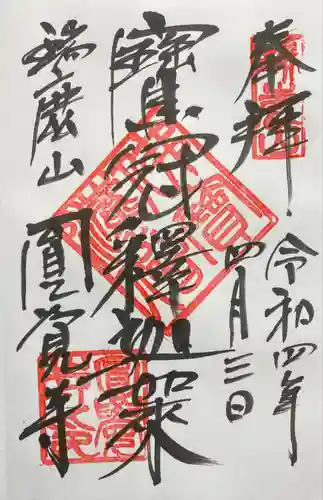 奉拝
令和四年
四月三日
寳冠釋迦架
瑞鹿山
圓覚寺